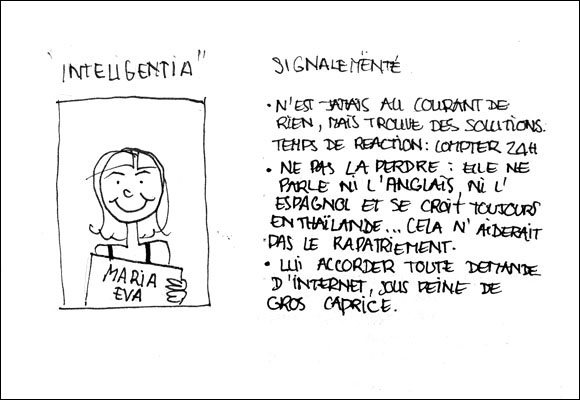 "INTELIGENTIA"
MARIA
EVA
SIGNALEMËNTÉ
• N'EST JAMAIS AU COURANT DE
RIEN, MAIS TROUVE DES SOLUTIONS.
TEMPS DE REACTION : COMPTER 24H
• NE PAS LA PERDRE : ELLE NE
PARLE NI L'ANGLAIS, NI L'
ESPAGNOL ET SE CROIT TOUJOURS
EN THAÏLANDE... CELA N'AIDERAIT
PAS LE RAPATRIEMENT.
• LUI ACCORDER TOUTE DEMANDE
D'INTERNET, SOUS PEINE DE
GROS CAPRICE.